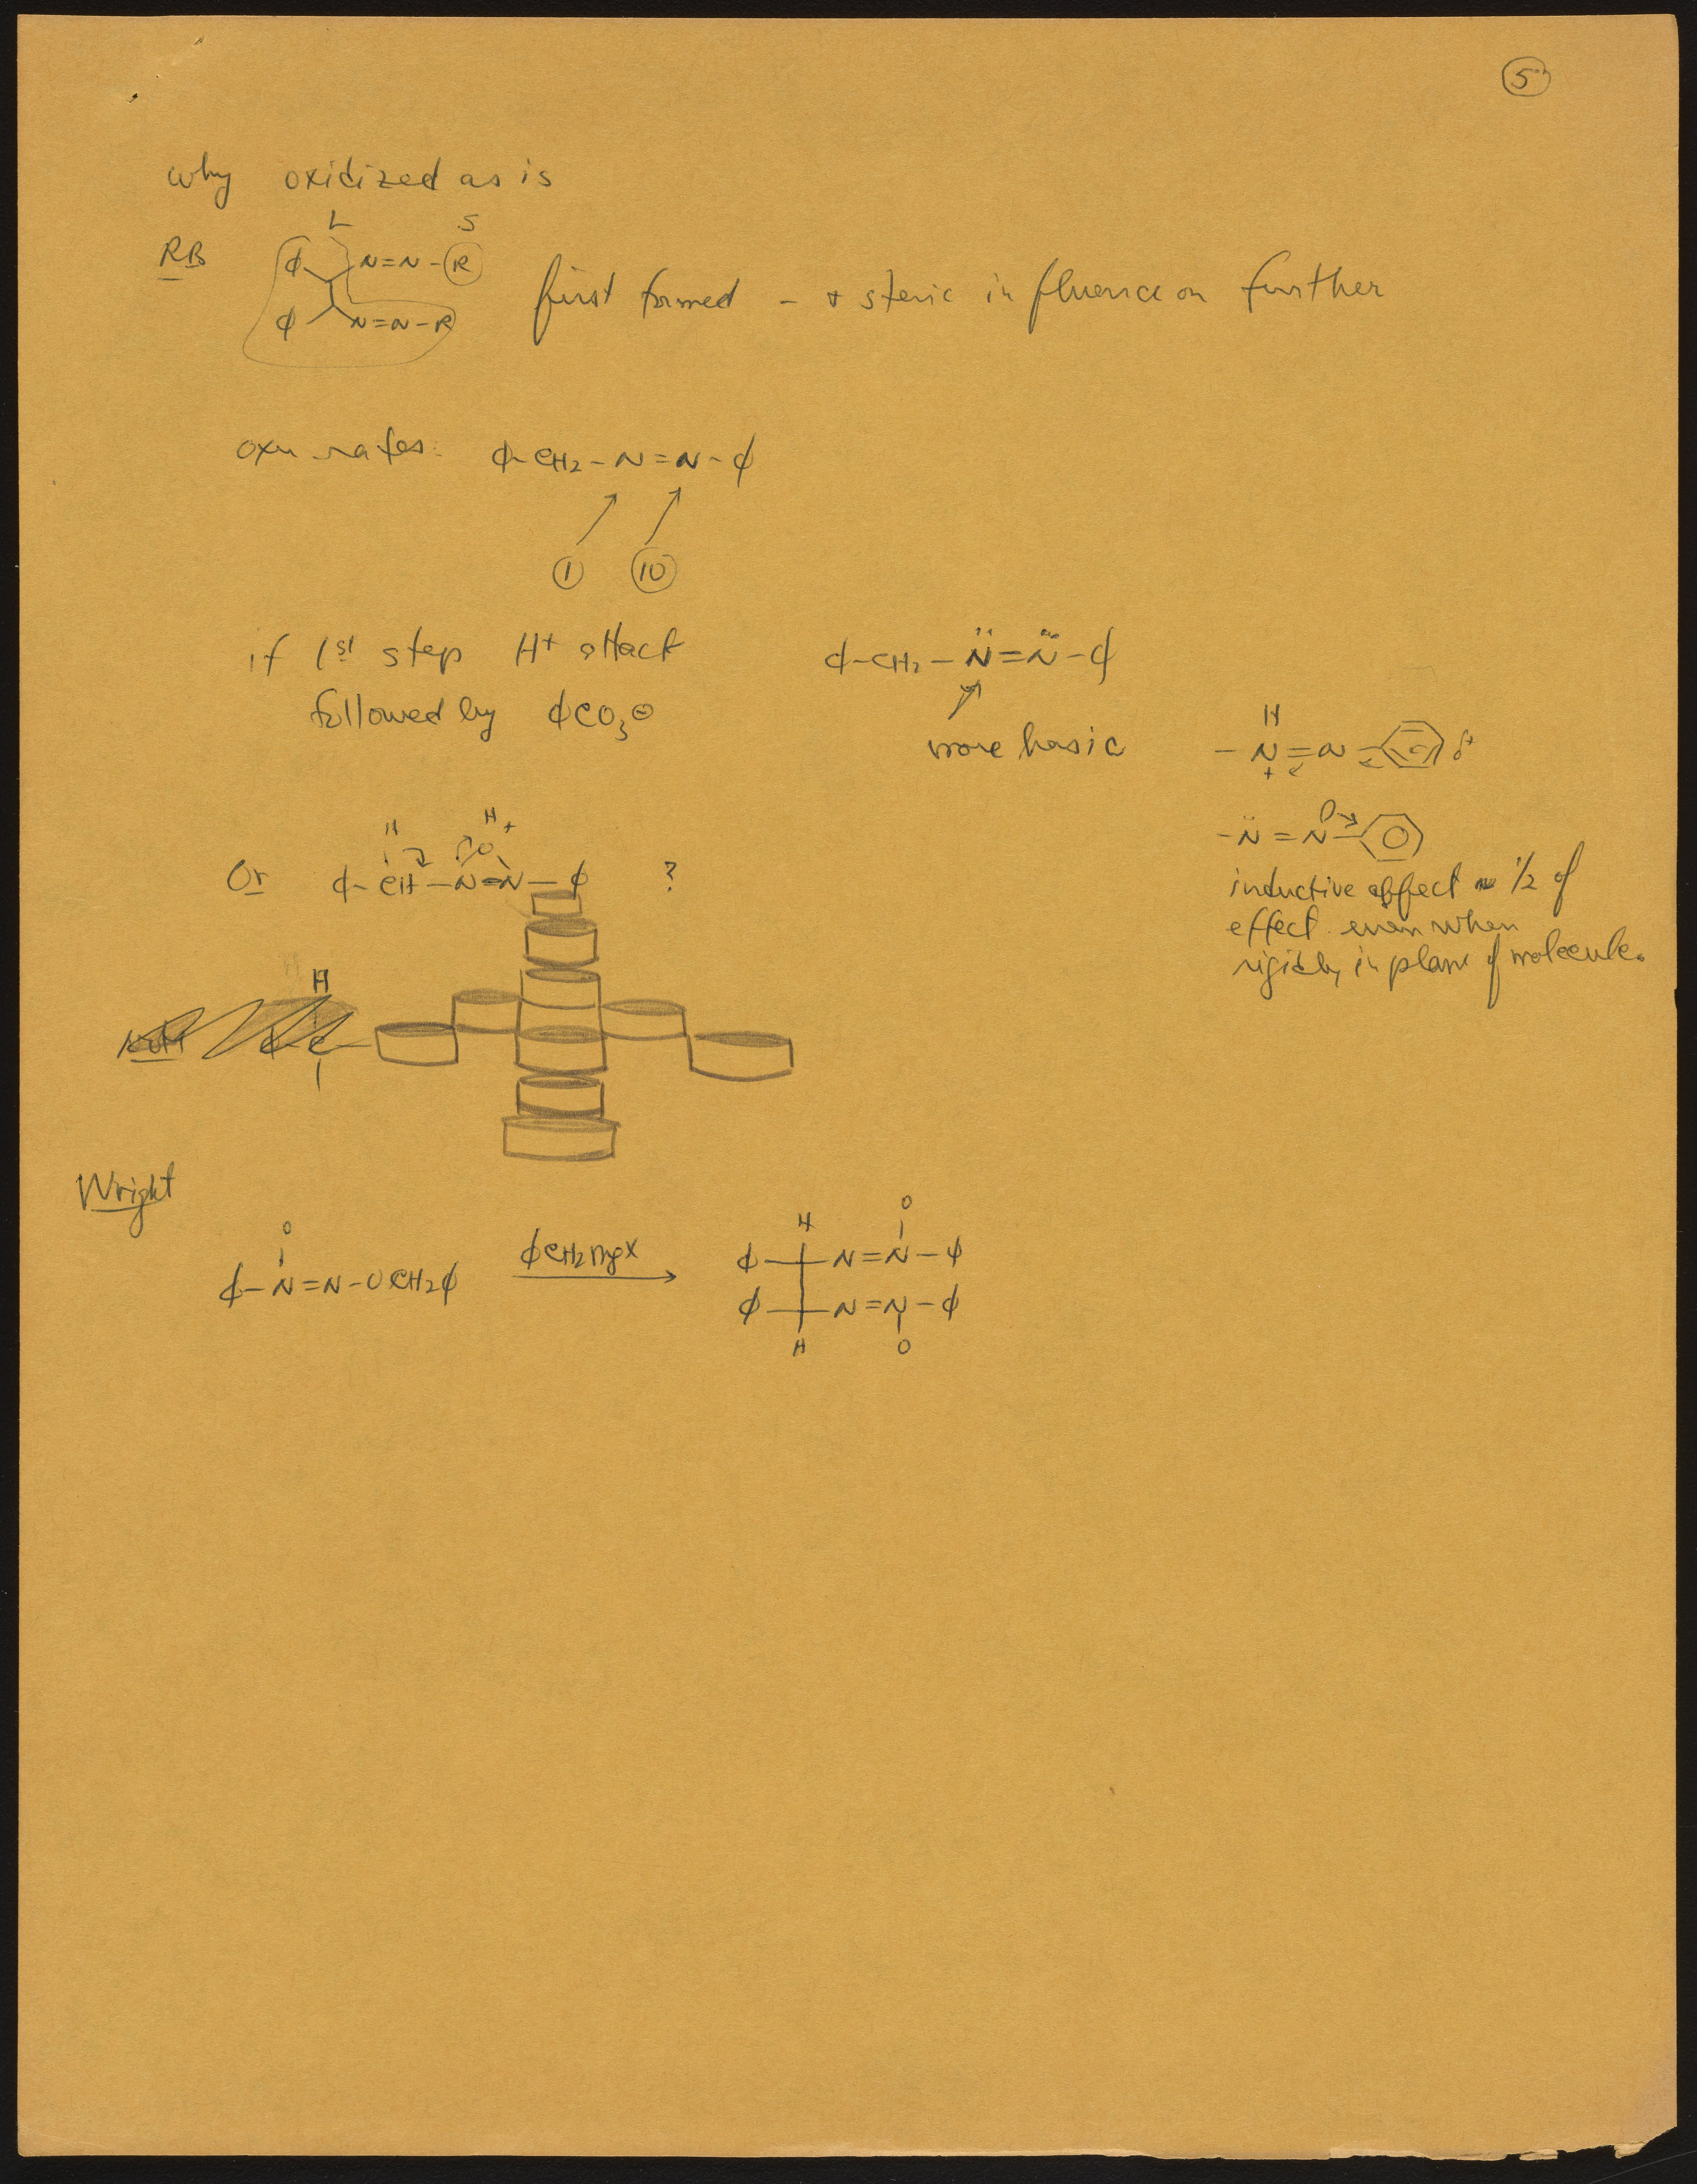 5
why oxidized as is
L S
RB ϕ N=N-R
ϕ N=N-R
first formed - + steric influence on further
oxn rates: ϕ-CH2-N=N-ϕ
1 10
if 1st step H+ attack
followed by ϕCO3⊖
ϕ-CH2-N̈=N̈-ϕ
more basic
H
-N=N- δ+
+
-N̈=N-
inductive effect ~ 1/2 of
effect even when
rigidly in plane of molecule.
H O H+
Or ϕ-CH-N=N-ϕ ?
H
C
Wright
O
ϕ-N=N-OCH2ϕ
ϕCH2MgX
H O
ϕ N=N-ϕ
ϕ N=N-ϕ
H O